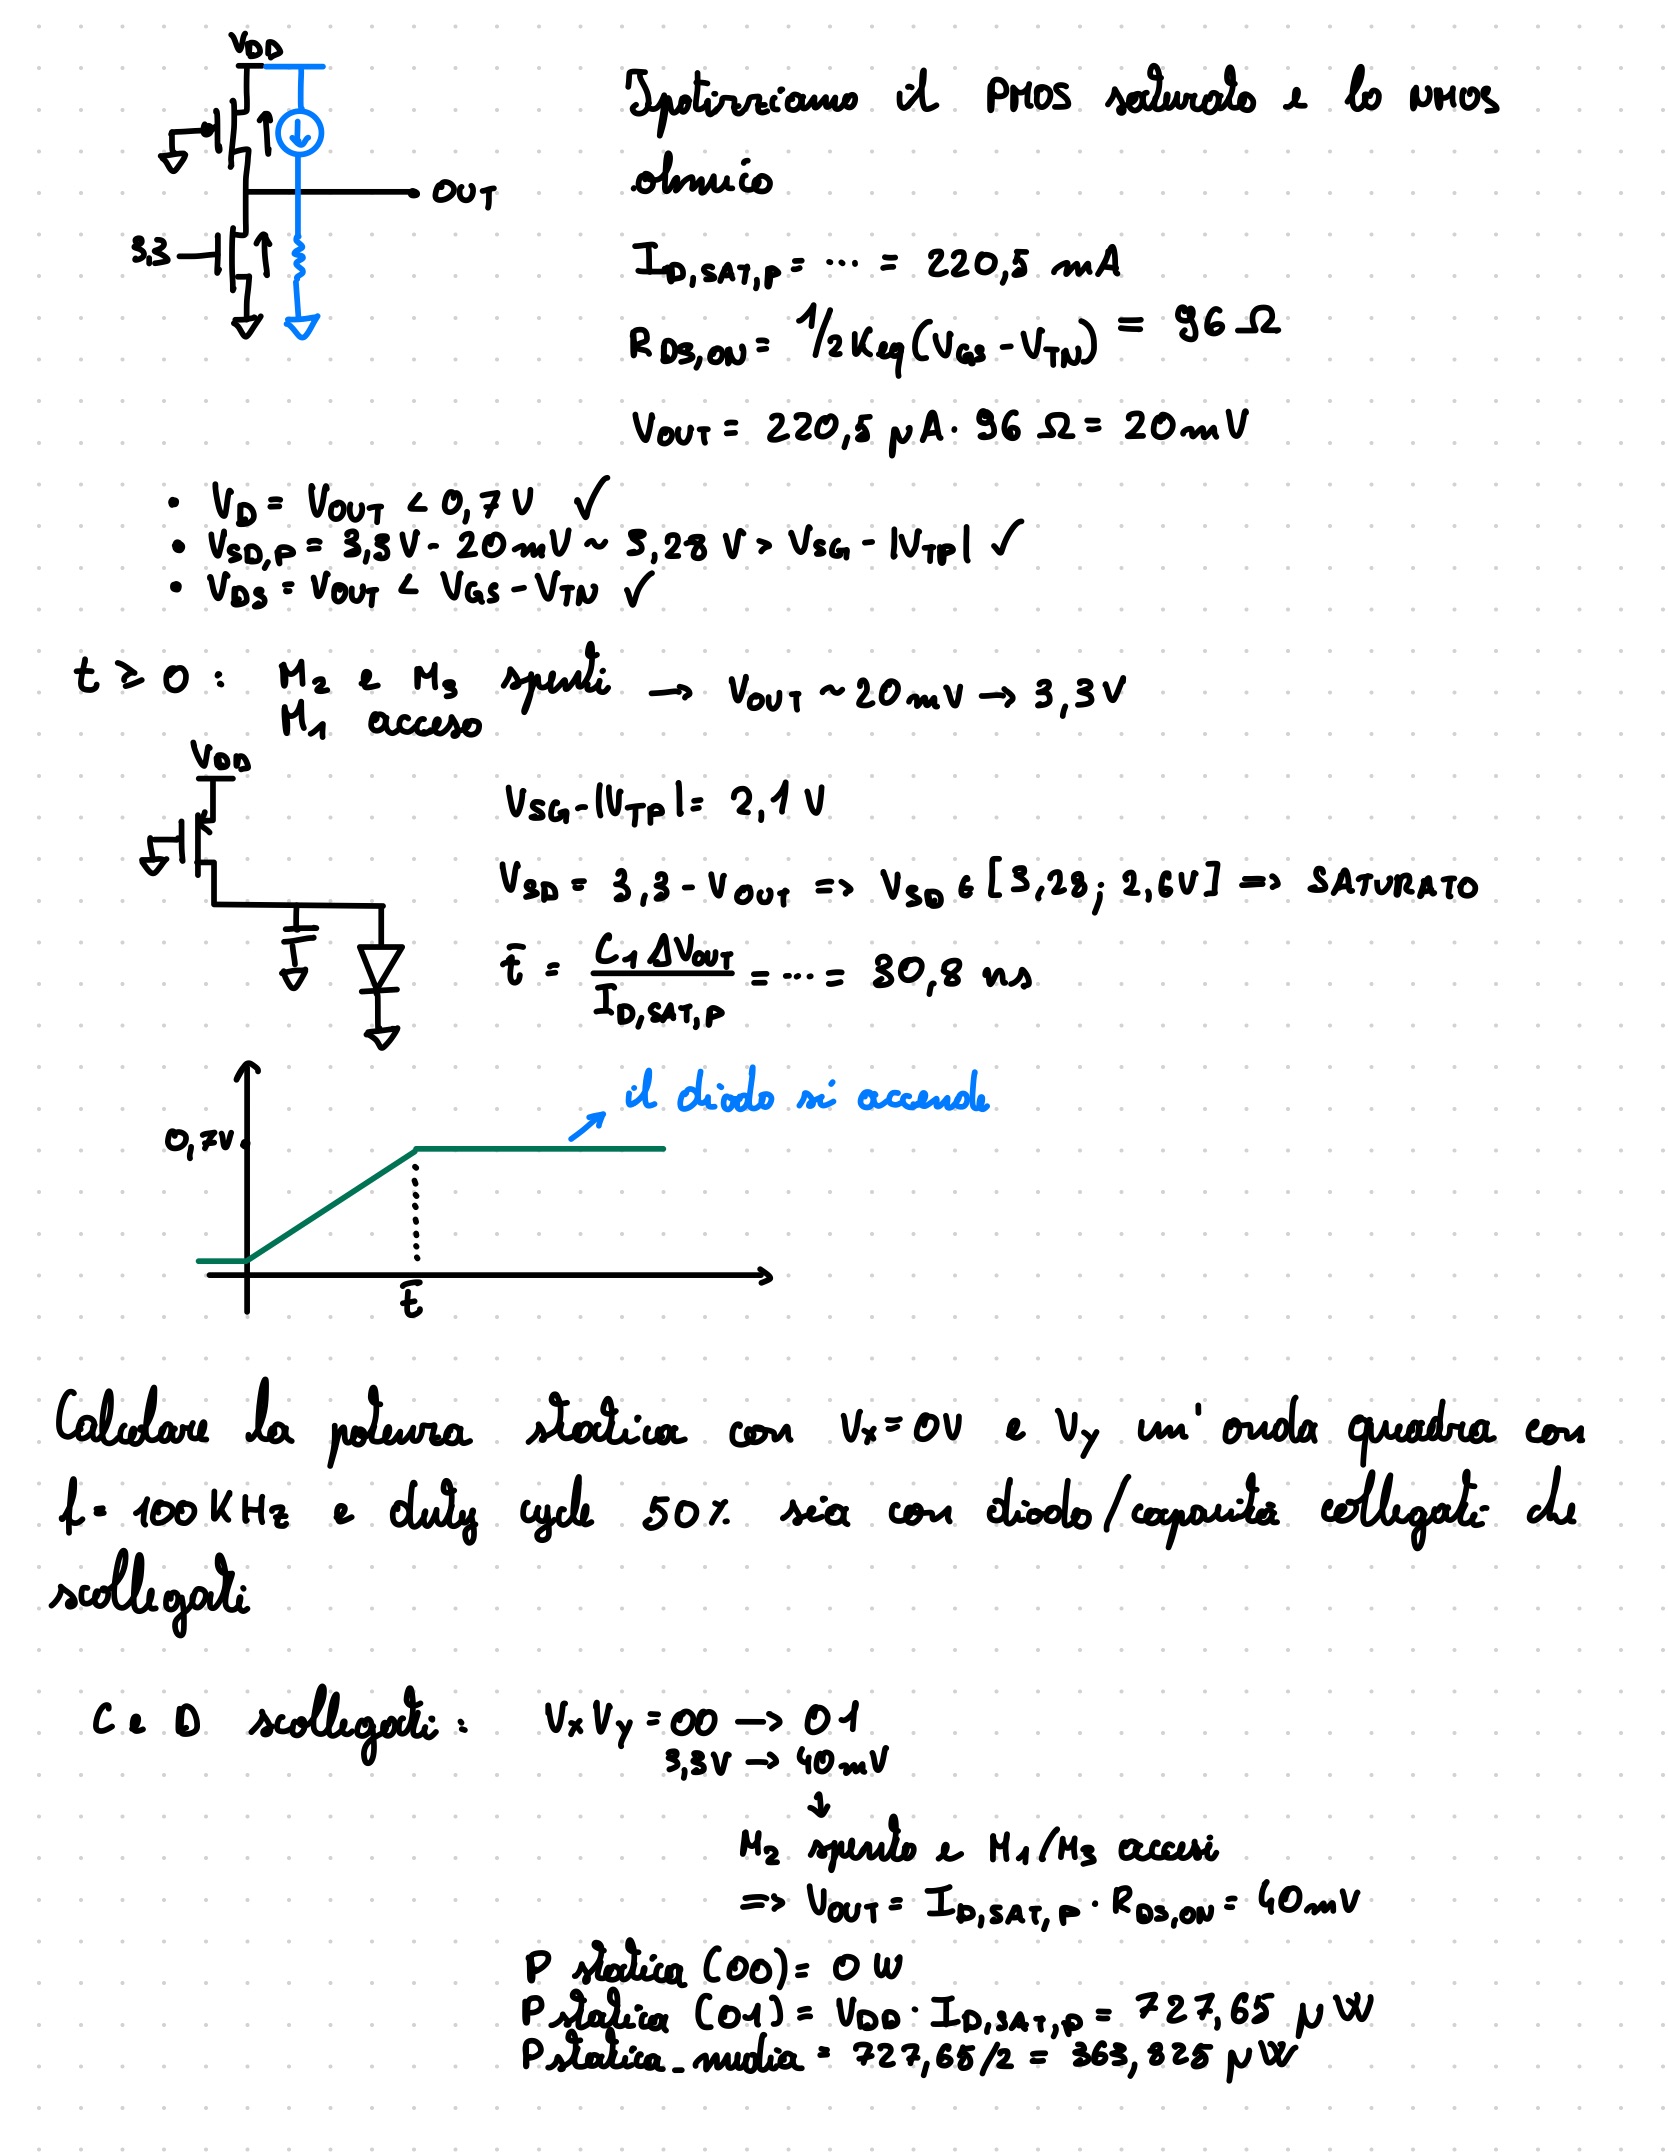 VDD
OUT
3,3
Ipotizziamo il PMOS saturato e lo NMOS
ohmico
ID,SAT,P = ... = 220,5 mA
RDS,ON = 1/2Keq(VGS - VTN) = 96 Ω
VOUT = 220,5 μA · 96 Ω = 20mV
• VD = VOUT < 0,7 V ✓
• VSD,P = 3,3V - 20mV ~ 3,28 V > VSG - |VTP| ✓
• VDS = VOUT < VGS - VTN ✓
t ≥ 0 : M2 e M3 spenti → VOUT ~ 20mV → 3,3V
M1 acceso
VDD
VSG - |VTP| = 2,1 V
VSD = 3,3 - VOUT => VSD ∈ [3,28; 2,6V] => SATURATO
t̄ = C1 ΔVOUT / ID,SAT,P = ... = 30,8 ns
il diodo si accende
0,7V
t̄
Calcolare la potenza statica con Vx = 0V e Vy un'onda quadra con
f = 100 KHz e duty cycle 50% sia con diodo/capacità collegati che
scollegati
C e D scollegati: VxVy = 00 → 01
3,3V → 40mV
↓
M2 spento e M1/M3 accesi
=> VOUT = ID,SAT,P · RDS,ON = 40mV
P statica (00) = 0 W
P statica (01) = VDD · ID,SAT,P = 727,65 μW
P statica_media = 727,65/2 = 363,825 μW